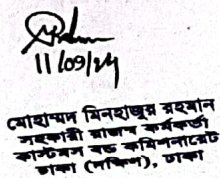 11/09/24
মোহাম্মদ মিনহাজুর রহমান
সহকারী রাজস্ব কর্মকর্তা
কাস্টমস বন্ড কমিশনারেট
ঢাকা (দক্ষিণ), ঢাকা